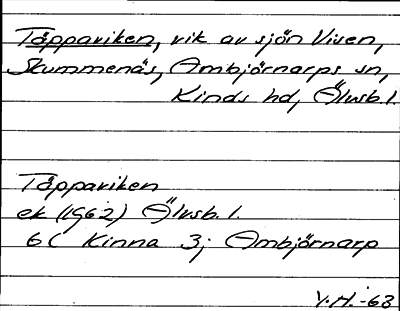 Täppaviken, vik av sjön Viven,
Skummenäs, Ambjörnarps sn,
Kinds hd, Älvsb. l.
Täppaviken
ek (1962) Älvsb. l.
6C Kinna 3; Ambjörnarp
V.H. -63